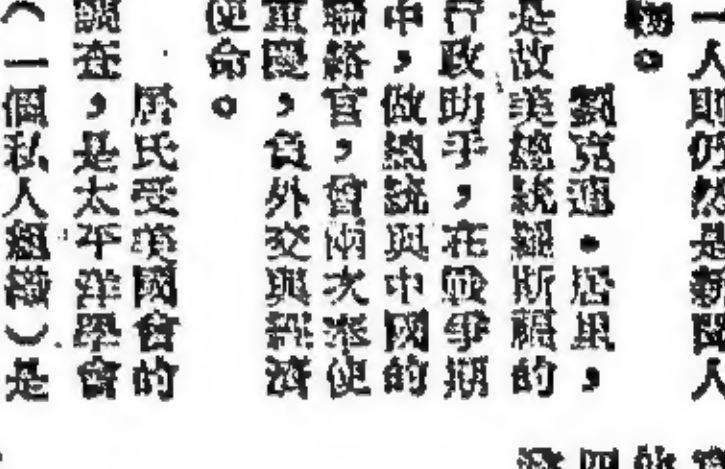 一人則仍然是新聞人
物。
劉克遜·居里,
是故美總統羅斯福的
行政助手,在戰爭期
中,做總統與中國的
聯絡官,曾兩次來使
重慶,負外交與經濟
使命。
居氏受美國會的
調查,是太平洋學會
(一個私人組織)是